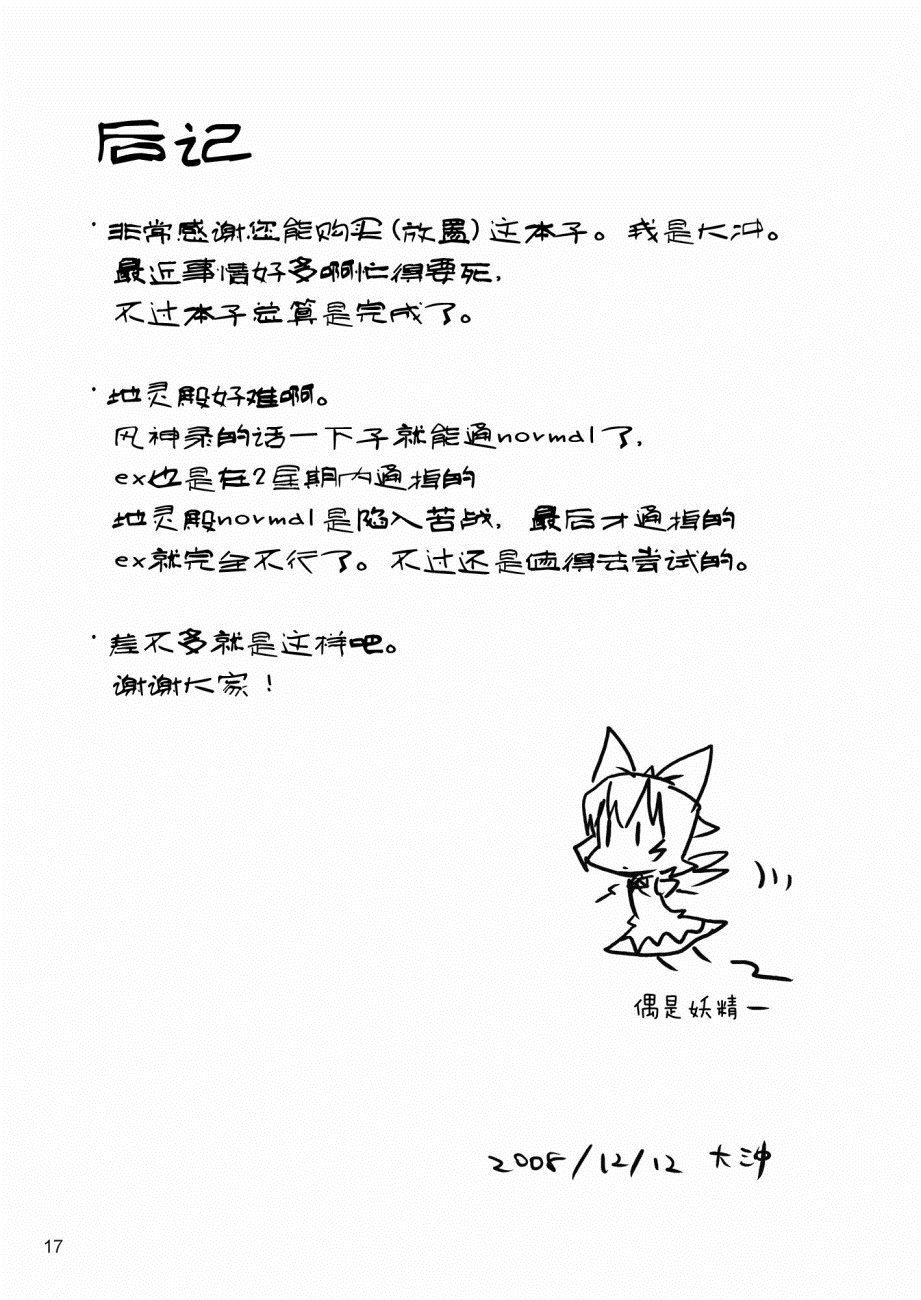 后记
·非常感谢您能购买(放置)这本子。我是大冲。
最近事情好多啊忙得要死,
不过本子总算是完成了。
·地灵殿好难啊。
风神录的话一下子就能通normal了,
ex也是在2星期内通掉的
地灵殿normal是陷入苦战, 最后才通掉的
ex就完全不行了。不过还是值得去尝试的。
·差不多就是这样吧。
谢谢大家!
偶是妖精—
2008/12/12 大冲
17